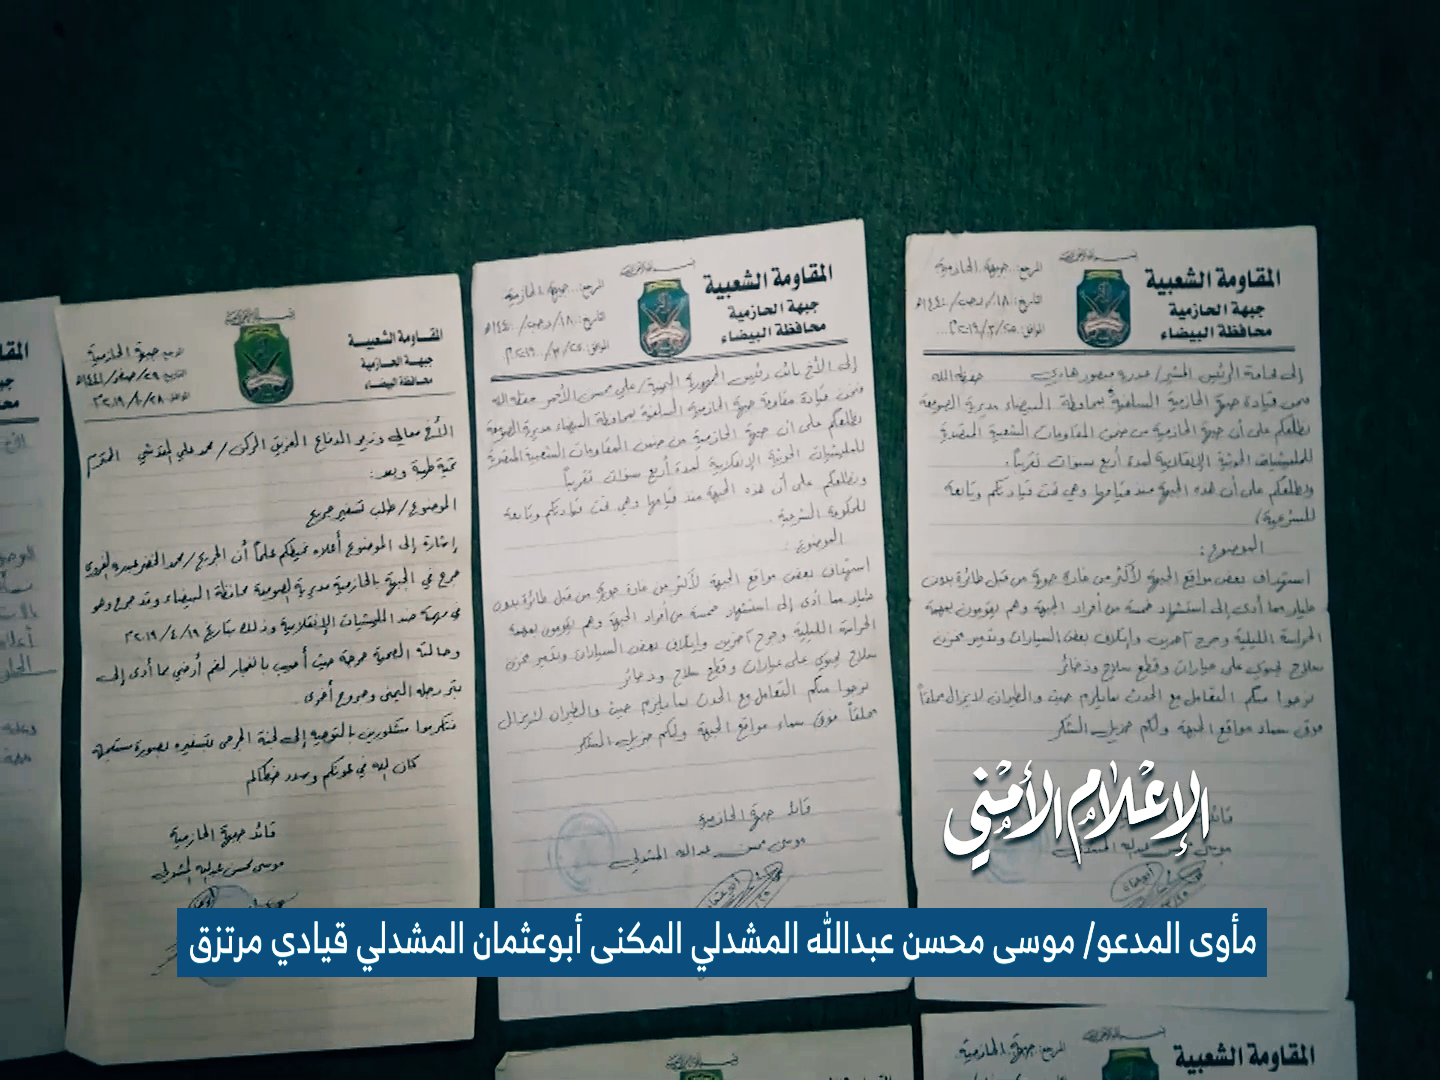 المقاومة الشعبية
جبهة الحازمية
محافظة البيضاء
المرجع: جبهة الحازمية
التاريخ: ١٨/رجب/١٤٤٠هـ
الموافق: ٢٥/٣/٢٠١٩م
إلى فخامة الرئيس المشير/ عبدربه منصور هادي حفظه الله
فمن قيادة جبهة الحازمية السلفية بمحافظة البيضاء مديرية الصومعة
نطلعكم على أن جبهة الحازمية من ضمن المقاومات الشعبية المتصدية
للمليشيات الحوثية الإنقلابية لمدة أربع سنوات تقريباً.
ونطلعكم على أن هذه الجبهة منذ قيامها وهي تحت قيادتكم وتابعة
للشرعية
الموضوع:
استهداف بعض مواقع الجبهة لأكثر من غارة جوية من قبل طائرة بدون
طيار مما أدى إلى استشهاد خمسة من أفراد الجبهة وهم يقومون بمهمة
الحراسة الليلية وجرح آخرين وإتلاف بعض السيارات وتدمير مخزن
سلاح يحتوي على عيارات وقطع سلاح وذخائر
نرجوا منكم التفاعل مع الحدث بما يلزم حيث والطيران لا يزال محلقاً
فوق سماء مواقع الجبهة ولكم جزيل الشكر
قائد
المقاومة الشعبية
جبهة الحازمية
محافظة البيضاء
المرجع: جبهة الحازمية
التاريخ: ١٨/رجب/١٤٤٠هـ
الموافق: ٢٥/٣/٢٠١٩م
إلى الأخ نائب رئيس الجمهورية اليمنية/ علي محسن الأحمر حفظه الله
فمن قيادة مقاومة جبهة الحازمية السلفية بمحافظة البيضاء مديرية الصومعة
نطلعكم على أن جبهة الحازمية من ضمن المقاومات الشعبية المتصدية
للمليشيات الحوثية الإنقلابية لمدة أربع سنوات تقريباً
ونطلعكم على أن هذه الجبهة منذ قيامها وهي تحت قيادتكم وتابعة
للحكومة الشرعية.
الموضوع:
استهداف بعض مواقع الجبهة لأكثر من غارة جوية من قبل طائرة بدون
طيار مما أدى إلى استشهاد خمسة من أفراد الجبهة وهم يقومون بمهمة
الحراسة الليلية وجرح آخرين وإتلاف بعض السيارات وتدمير مخزن
سلاح يحتوي على عيارات وقطع سلاح وذخائر
نرجوا منكم التفاعل مع الحدث بما يلزم حيث والطيران لا يزال
محلقاً فوق سماء مواقع الجبهة ولكم جزيل الشكر
قائد جبهة الحازمية
موسى محسن عبدالله المشدلي
أبو عثمان
المقاومة الشعبية
جبهة الحازمية
محافظة البيضاء
المرجع: جبهة الحازمية
التاريخ: ٢٩/صفر/١٤٤١هـ
الموافق: ٢٨/١٠/٢٠١٩م
الأخ معالي وزير الدفاع الفريق الركن/ محمد علي المقدشي المحترم
تحية طيبة وبعد:
الموضوع/ طلب تسفير جريح
إشارة إلى الموضوع أعلاه نحيطكم علماً أن الجريح/ محمد الخضر
جرح في الجبهة بالحازمية مديرية الصومعة محافظة البيضاء وقد جرح وهو
في مهمة ضد المليشيات الإنقلابية وذلك بتاريخ ١٩/٤/٢٠١٩
وحالته الصحية حرجة حيث أصيب بانفجار لغم أرضي مما أدى إلى
بتر رجله اليمنى وجروح أخرى.
فتكرموا مشكورين بالتوجيه إلى لجنة الجرحى لتسفيره بصورة مستعجلة
كان الله في عونكم وسدد خطاكم
قائد جبهة الحازمية
موسى محسن عبدالله المشدلي
الإعلام الأمني
مأوى المدعو/ موسى محسن عبدالله المشدلي المكنى أبوعثمان المشدلي قيادي مرتزق
المقاومة الشعبية
المرجع: جبهة الحازمية